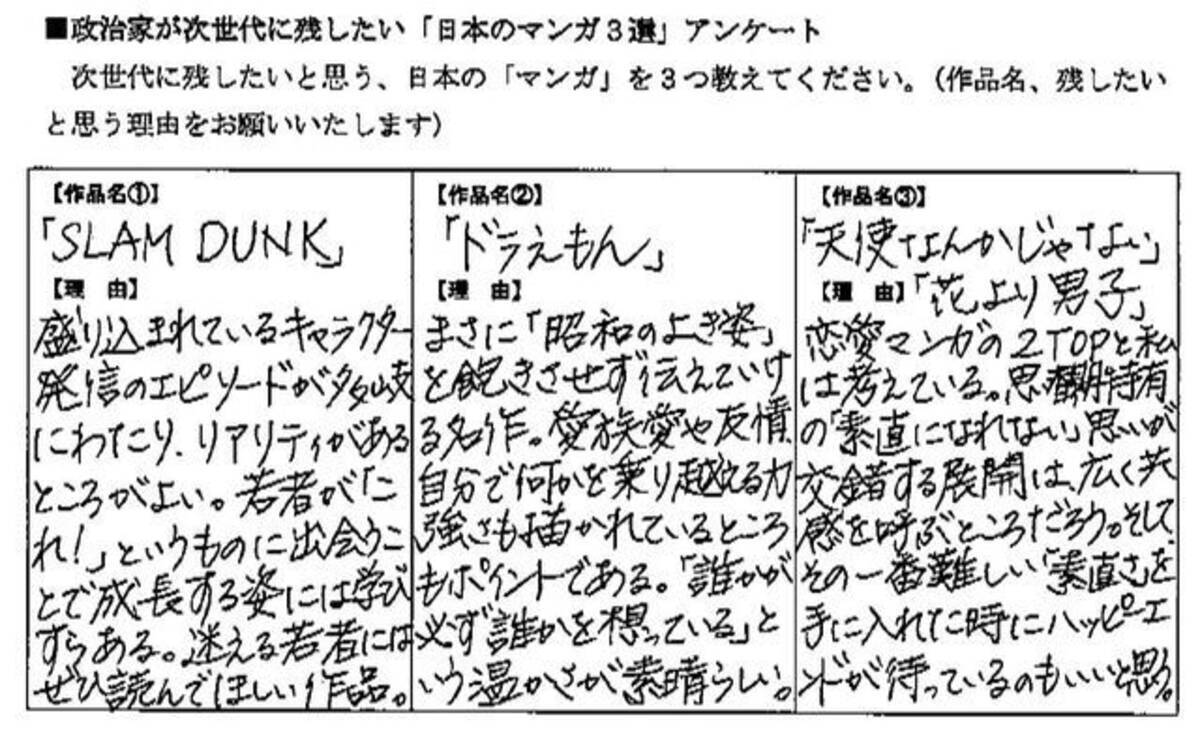 ■政治家が次世代に残したい「日本のマンガ3選」アンケート
次世代に残したいと思う、日本の「マンガ」を3つ教えてください。(作品名、残したい
と思う理由をお願いいたします)
【作品名①】
「SLAM DUNK」
【理 由】
盛り込まれているキャラクター
発信のエピソードが多岐
にわたり、リアリティがある
ところがよい。若者が「こ
れ!」というものに出会うこ
とで成長する姿には学び
すらある。迷える若者には
ぜひ読んでほしい作品。
【作品名②】
「ドラえもん」
【理 由】
まさに「昭和のよき姿」
を飽きさせず伝えていけ
る名作。愛族愛や友情、
自分で何かを乗り越える力
強さも描かれているところ
もポイントである。「誰かが
必ず誰かを想っている」と
いう温かさが素晴らしい。
【作品名③】
「天使なんかじゃない」
【理 由】「花より男子」
恋愛マンガの2TOPと私
は考えている。思春期特有
の「素直になれない」思いが
交錯する展開は、広く共
感を呼ぶところだろう。そして、
その一番難しい「素直さ」を
手に入れた時にハッピーエ
ンドが待っているのもいいと思う。